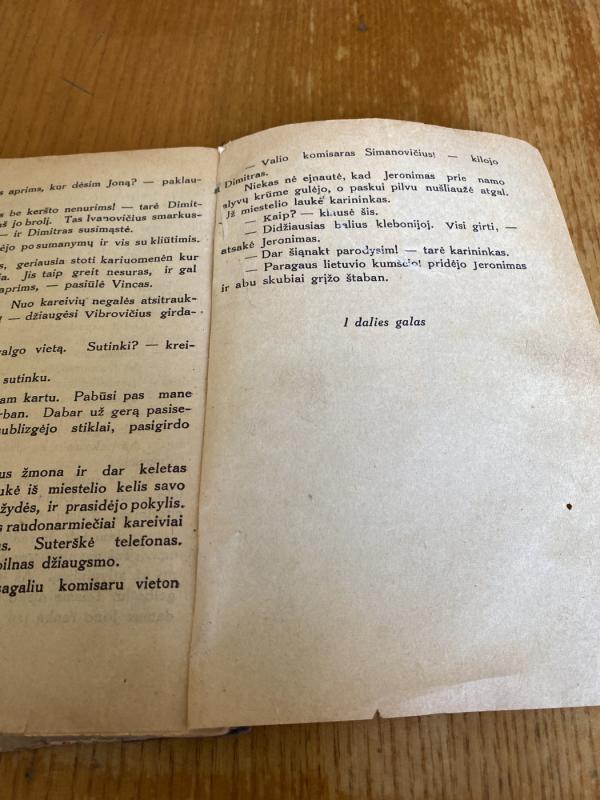 s aprims, kur dėsim Joną? — paklau-
s be keršto nenurims! — tarė Dimit-
aš jo brolį. Tas Ivanovičius smarkus-
— ir Dimitras susimąstė.
ėjo posumanymų ir vis su kliūtimis.
s, geriausia stoti kariuomenėn kur
a. Jis taip greit nesuras, ir gal
aprims, — pasiūlė Vincas.
Nuo kareivių negalės atsitrauk-
! — džiaugėsi Vibrovičius girda-
valgo vietą. Sutinki? — krei-
sutinku.
am kartu. Pabūsi pas mane
rban. Dabar už gerą pasise-
sublizgėjo stiklai, pasigirdo
us žmona ir dar keletas
ukė iš miestelio kelis savo
žydės, ir prasidėjo pokylis.
s raudonarmiečiai kareiviai
s. Suterškė telefonas.
pilnas džiaugsmo.
sagaliu komisaru vieton
— Valio komisaras Simanovičius! — kilojo
Dimitras.
Niekas nė ejnautė, kad Jeronimas prie namo
alyvų krūme gulėjo, o paskui pilvu nušliaužė atgal.
Iž miestelio laukė karininkas.
— Kaip? — klausė šis.
— Didžiausias balius klebonijoj. Visi girti, —
atsakė Jeronimas.
— Dar šiąnakt parodysim! — tarė karininkas.
— Paragaus lietuvio kumščio! pridėjo Jeronimas
ir abu skubiai grįžo štaban.
I dalies galas